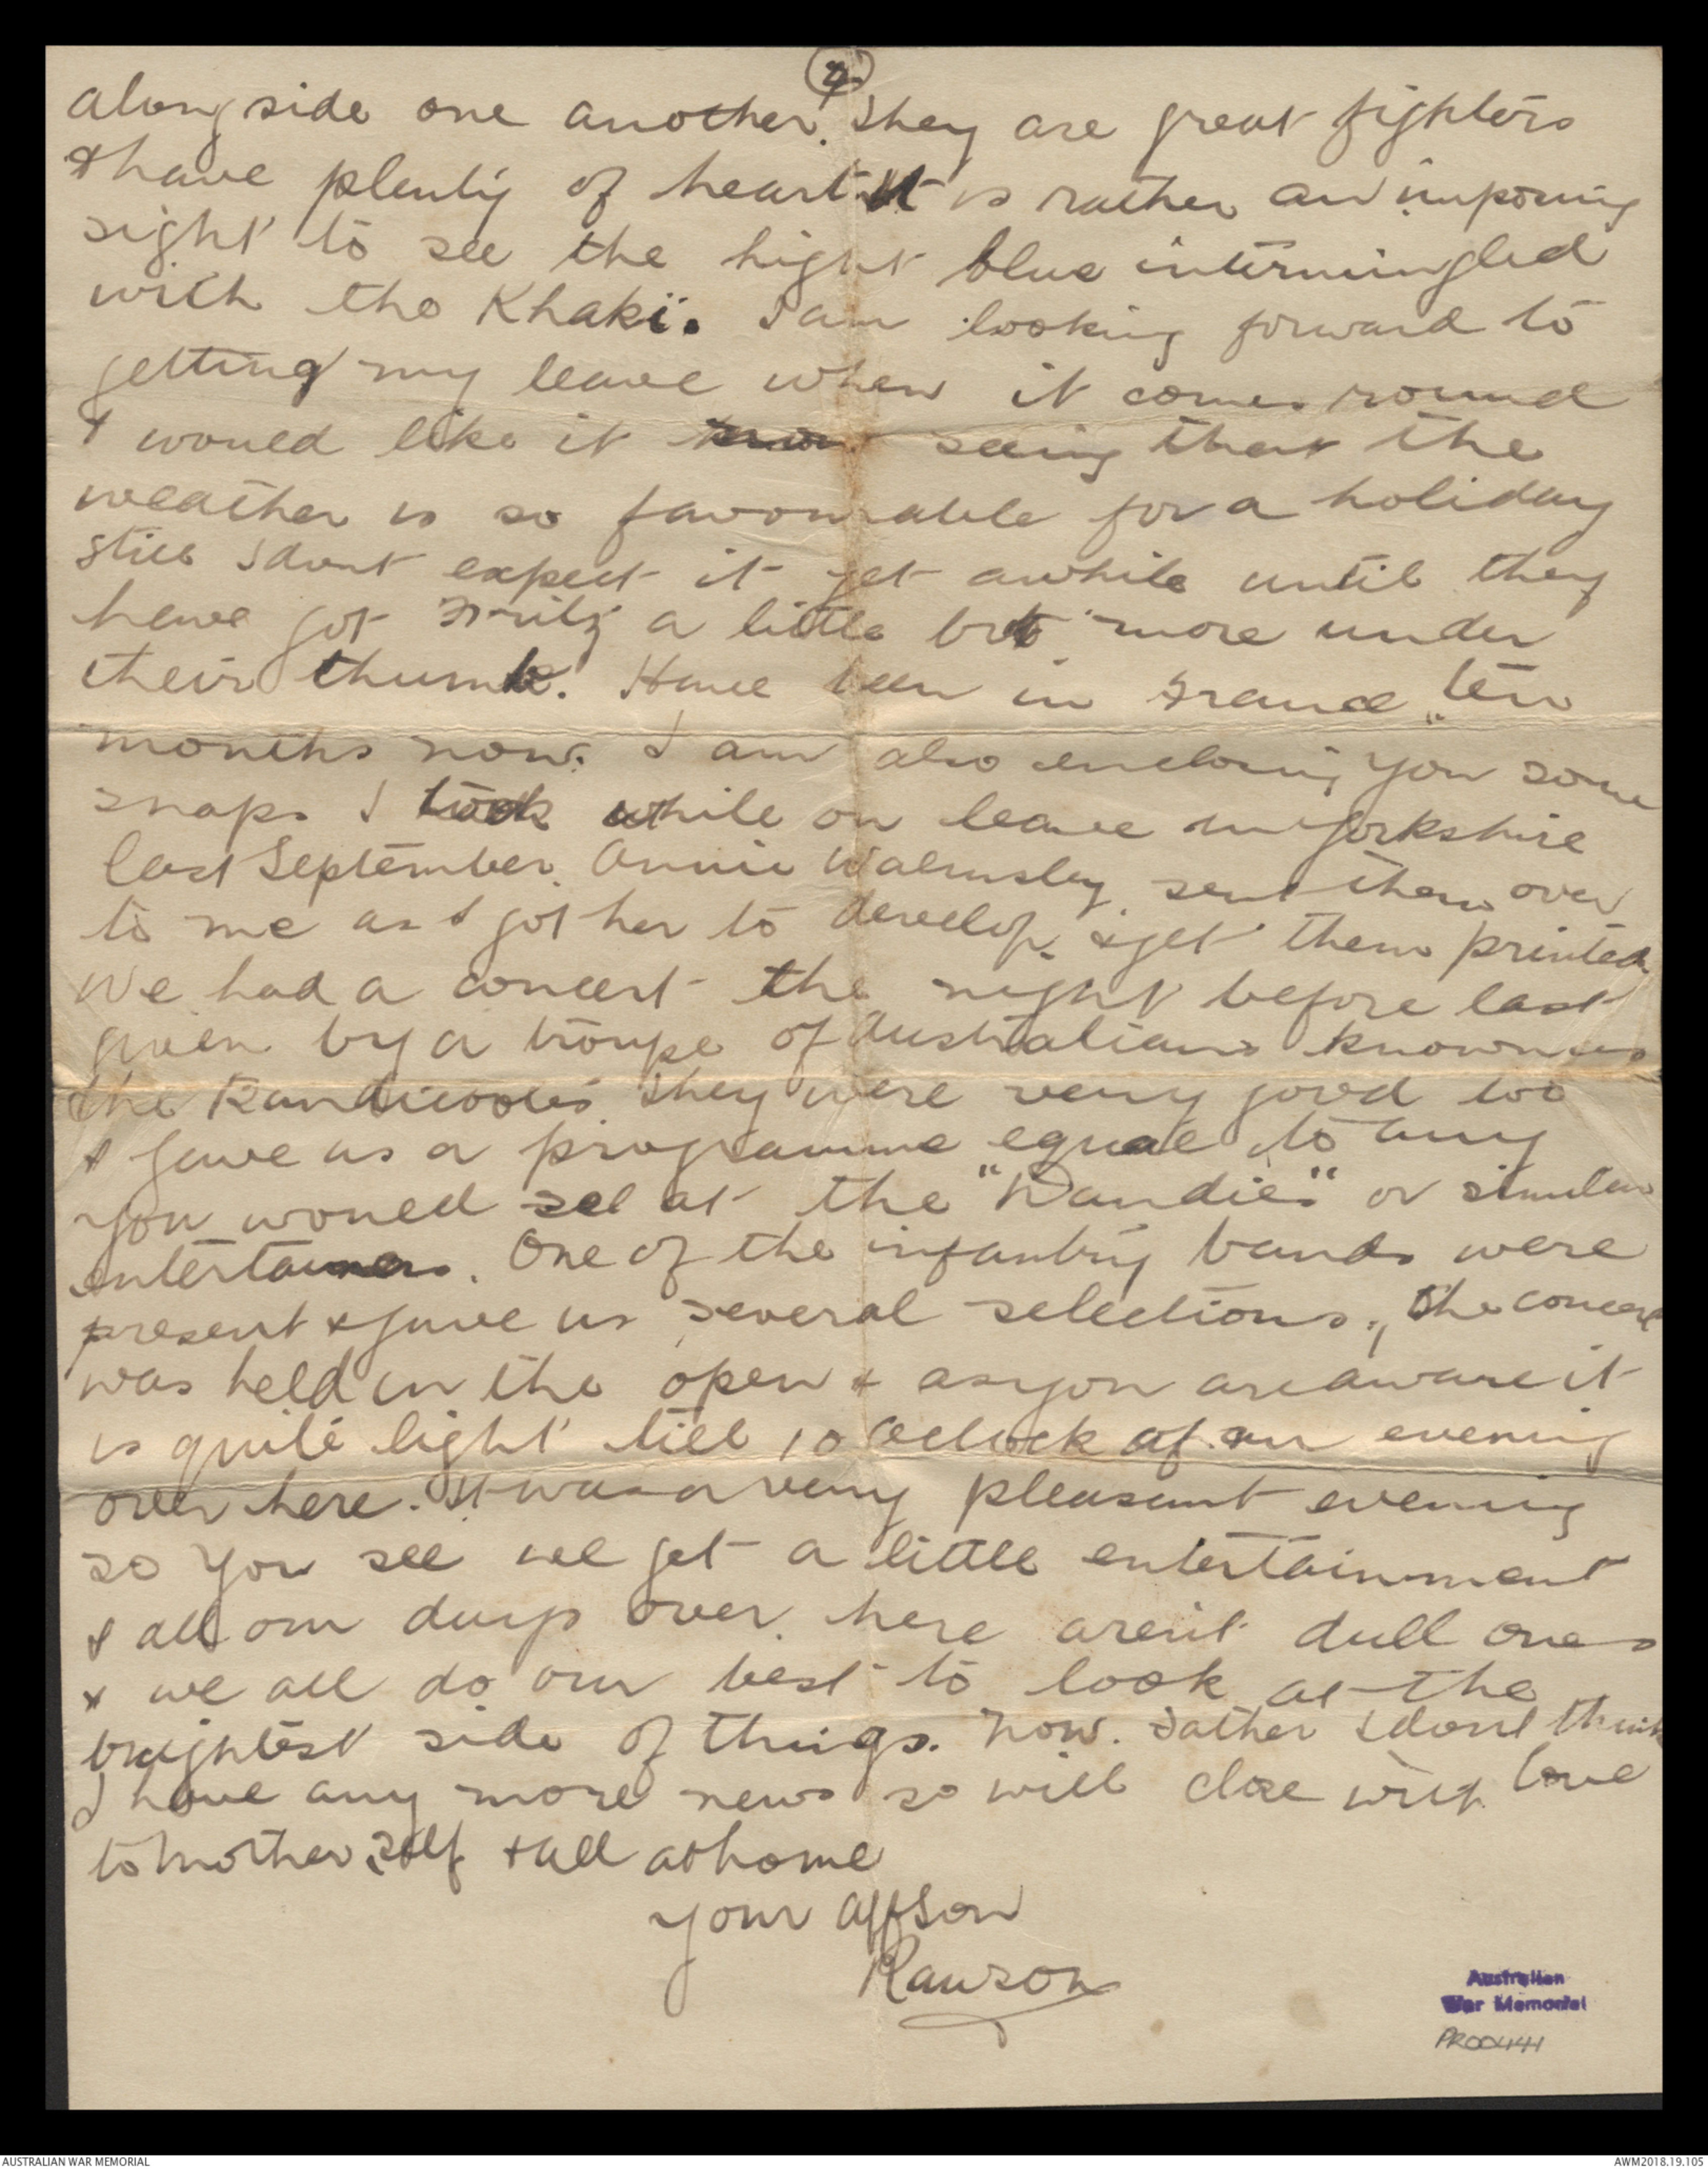 4
alongside one another. They are great fighters
& have plenty of heart. It is rather an imposing
sight to see the light blue intermingled
with the Khaki. I am looking forward to
getting my leave when it comes round
& would like it now seeing that the
weather is so favourable for a holiday
still I dont expect it yet awhile until they
have got Fritz a little bit more under
their thumb. Have been in France ten
months now. I am also enclosing you some
snaps I took while on leave in Yorkshire
last September. Annie Walmsley sent them over
to me as I got her to develop & get them printed.
We had a concert the night before last
given by a troupe of Australians known as
the they were very good too
& gave us a programme equal to any
you would see at the "Dandies" or similar
entertainers. One of the infantry bands were
present & gave us several selections., The concert
was held in the open & as you are aware it
is quite light till 10 Oclock of an evening
over here. It was a very pleasant evening
so you see we get a little entertainment
& all our days over here aren't dull ones
& we all do our best to look at the
brightest side of things. Now. Father I dont think
I have any more news so will close with love
to Mother, self & all at home
Your Aff Son
Rawson
Australian
War Memorial
PR00441
AUSTRALIAN WAR MEMORIAL
AWM2018.19.105